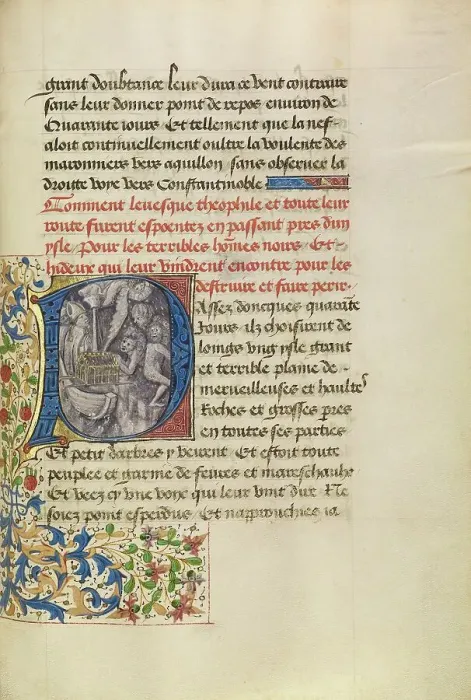 grant doubtance leur dura ce vent contraire
sans leur donner point de repos environ de
Quarante iours Et tellement que la nef
aloit continuellement oultre la voulente des
maronniers vers aquillon sans observer la
droute voye vers Constantinoble
Comment levesque theophile et toute leur
route furent espoentez en passant pres dun
ysle Pour les terribles hõmes noirs Et
hideux qui leur vindrent encontre pour les
destruire et faire perir.
Assez doncques quarãte
Jours ilz choisirent de
loings vng ysle grant
et terrible plaine de
merveilleuses et haultes
Roches et grosses pres
en toutes ses parties
Et petit darbres y veirent Et estoit toute
peuplee et garnie de feures et mareschaulx
Et veez cy vne voye qui leur vint dire Ne
soiez point esperdus Et napprouchies ia